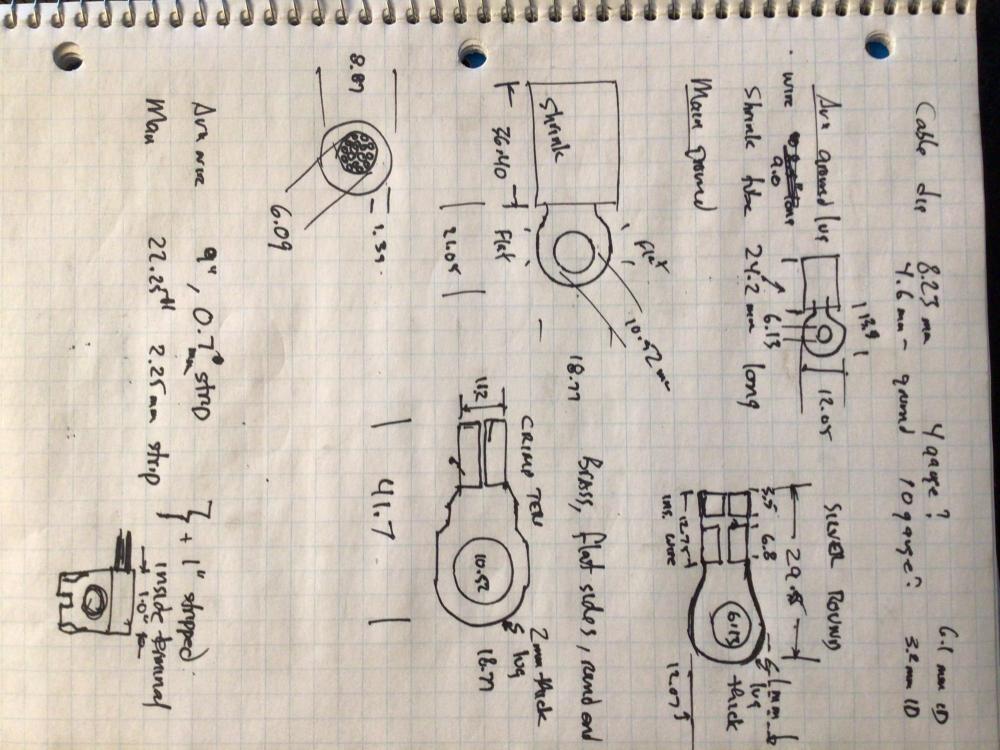 Cable dia 8.23 mm 4 gauge? 6.1 mm ID
4.6 mm - ground 10 gauge? 3.2 mm ID
Aux ground lug
wire
9.0
13.9
12.05
6.13
Shrink tube 24.2 mm long
Main ground
SILVER ROUND
29.85
3.5
6.8
12.75
ins. wire
6.13
1 mm
lug
thick
12.07
Shrink
36.40
flat
Flat
10.52 mm
18.77
Brass, flat sides, round end
CRIMP
10.52
2mm thick
lug
18.77
41.7
8.87
6.09
Aux wire 9", 0.7" strip
Main 22.25" 2.25mm strip
+ 1" stripped
inside terminal
1.0"